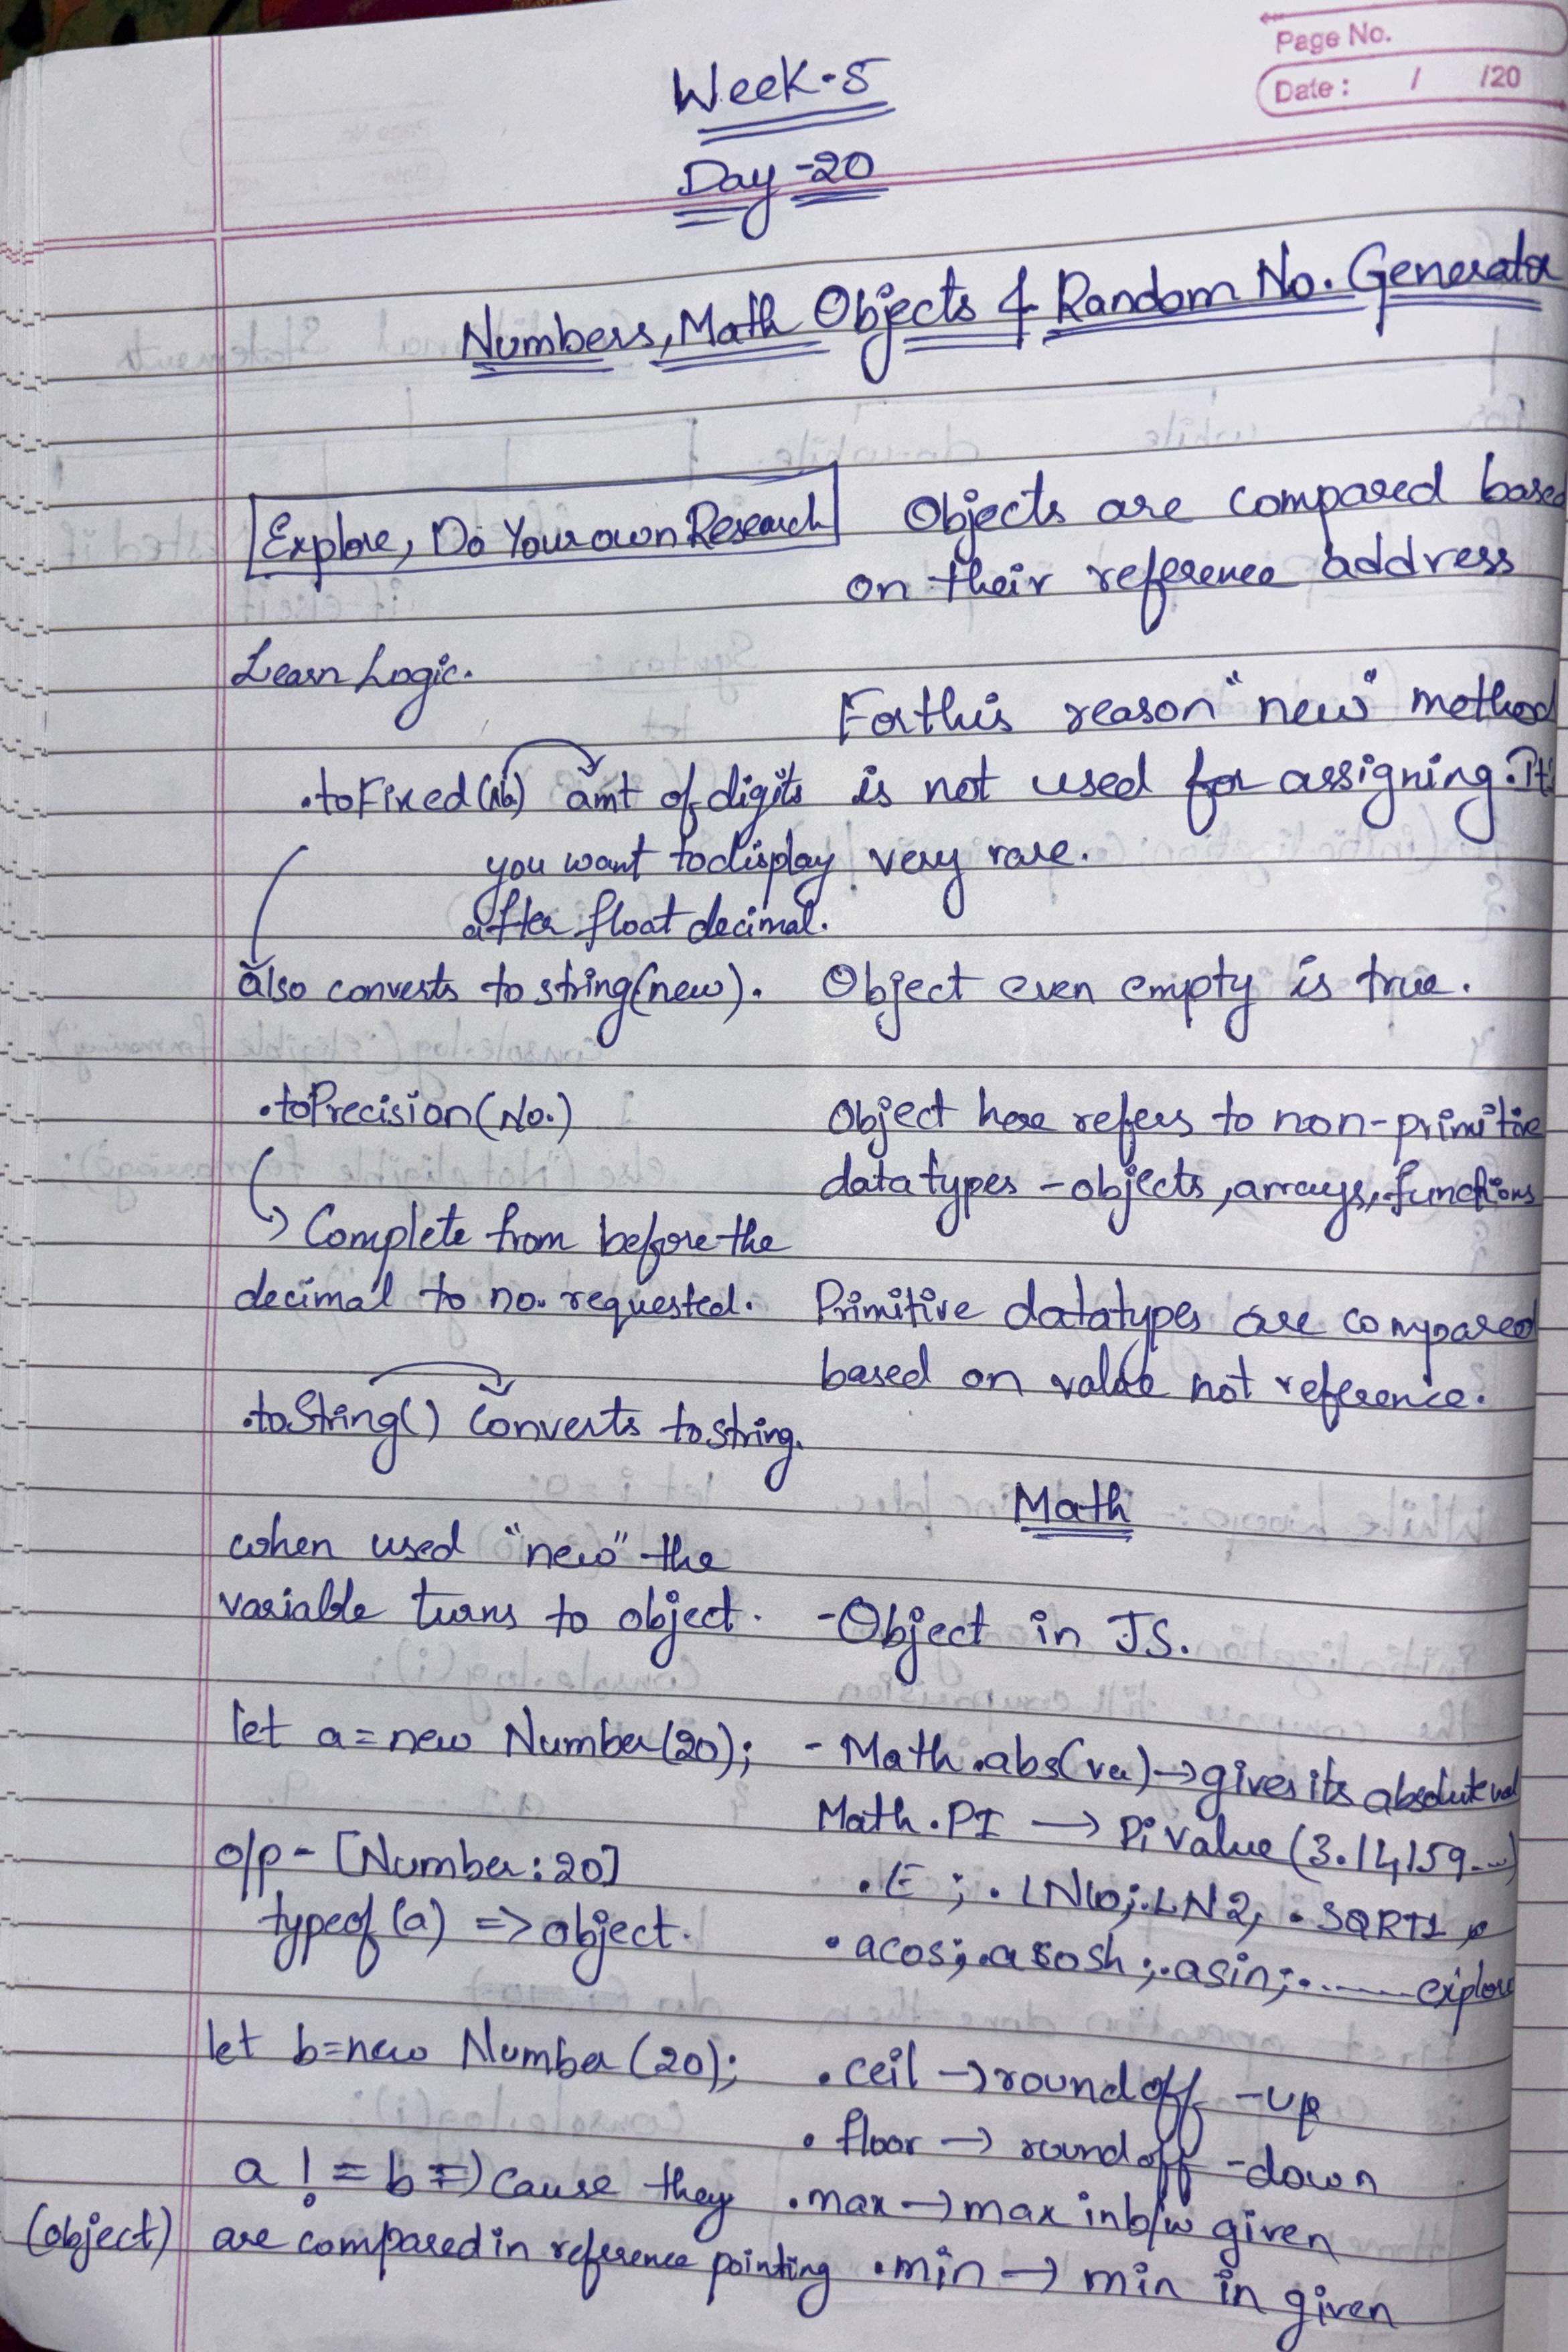 Page No.
Date : / /20
Week-5
Day-20
Numbers, Math Objects & Random No. Generator
Explore, Do Your own Research
Learn Logic.
.toFixed(No.) amt of digits
you want to display
after float decimal.
also converts to string(new).
.toPrecision(No.)
Complete from before the
decimal to no. requested.
.toString() converts to string.
when used "new" the
variable turns to object.
let a = new Number(20);
o/p - [Number: 20]
typeof(a) => object.
let b=new Number(20);
a != b => cause they
(object) are compared in reference pointing
Objects are compared based
on their reference address
For this reason "new" method
is not used for assigning. It's
very rare.
Object even empty is true.
Object here refers to non-primitive
datatypes - objects, arrays, functions
Primitive datatypes are compared
based on value not reference.
Math
-Object in JS.
- Math.abs(va) → gives its absolute val
Math.PI → Pi value (3.14159...)
.E ; .LN10; .LN2, .SQRT1
.acos; .acosh ; .asin; ....... explore
.ceil → round off -up
.floor → round off -down
.max → max in b/w given
.min → min in given